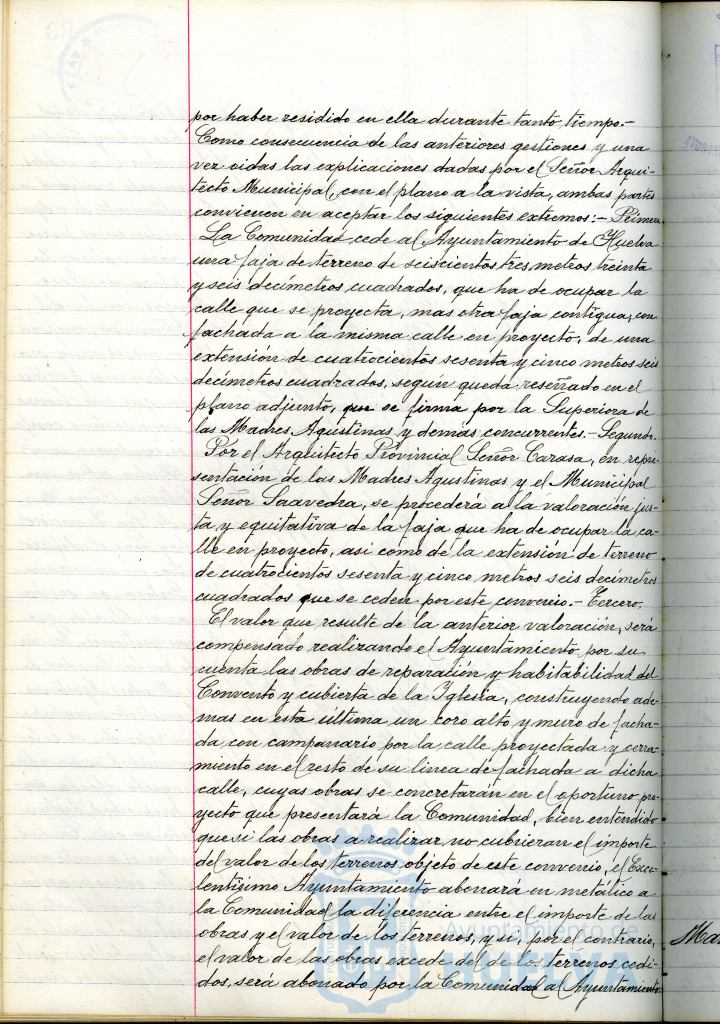 por haber residido en ella durante tanto tiempo.-
Como consecuencia de las anteriores gestiones y una
vez oidas las explicaciones dadas por el Señor Arqui-
tecto Municipal, con el plano a la vista, ambas partes
convienen en aceptar los siguientes extremos:- Primero.
La Comunidad cede al Ayuntamiento de Huelva
una faja de terreno de seiscientos tres metros treinta
y seis decimetros cuadrados, que ha de ocupar la
calle que se proyecta, mas otra faja contigua, con
fachada a la misma calle en proyecto, de una
extensión de cuatrocientos sesenta y cinco metros seis
decímetros cuadrados, según queda reseñado en el
plano adjunto, que se firma por la Superiora de
las Madres Agustinas y demás concurrentes.- Segundo.
Por el Arquitecto Provincial Señor Carasa, en repre-
sentación de las Madres Agustinas y el Municipal
Señor Saavedra, se procederá a la valoración jus-
ta y equitativa de la faja que ha de ocupar la ca-
lle en proyecto, asi como de la extensión de terreno
de cuatrocientos sesenta y cinco metros seis decímetros
cuadrados que se ceden por este convenio.- Tercero.
El valor que resulte de la anterior valoración, será
compensado realizando el Ayuntamiento por su
cuenta las obras de reparación y habitabilidad del
Convento y cubierta de la Yglesia, construyendo ade-
mas en esta ultima un coro alto y muro de facha-
da con campanario por la calle proyectada y cerra-
miento en el resto de su linea de fachada a dicha
calle, cuyas obras se concretarán en el oportuno pro-
yecto que presentará la Comunidad, bien entendido
que si las obras a realizar no cubrieran el importe
del valor de los terrenos objeto de este convenio, el Exce-
lentisimo Ayuntamiento abonará en metálico a
la Comunidad la diferencia entre el importe de las
obras y el valor de los terrenos, y si, por el contrario,
el valor de las obras excede del de los terrenos cedi-
dos, será abonado por la Comunidad al Ayuntamiento.
Ayuntamiento de